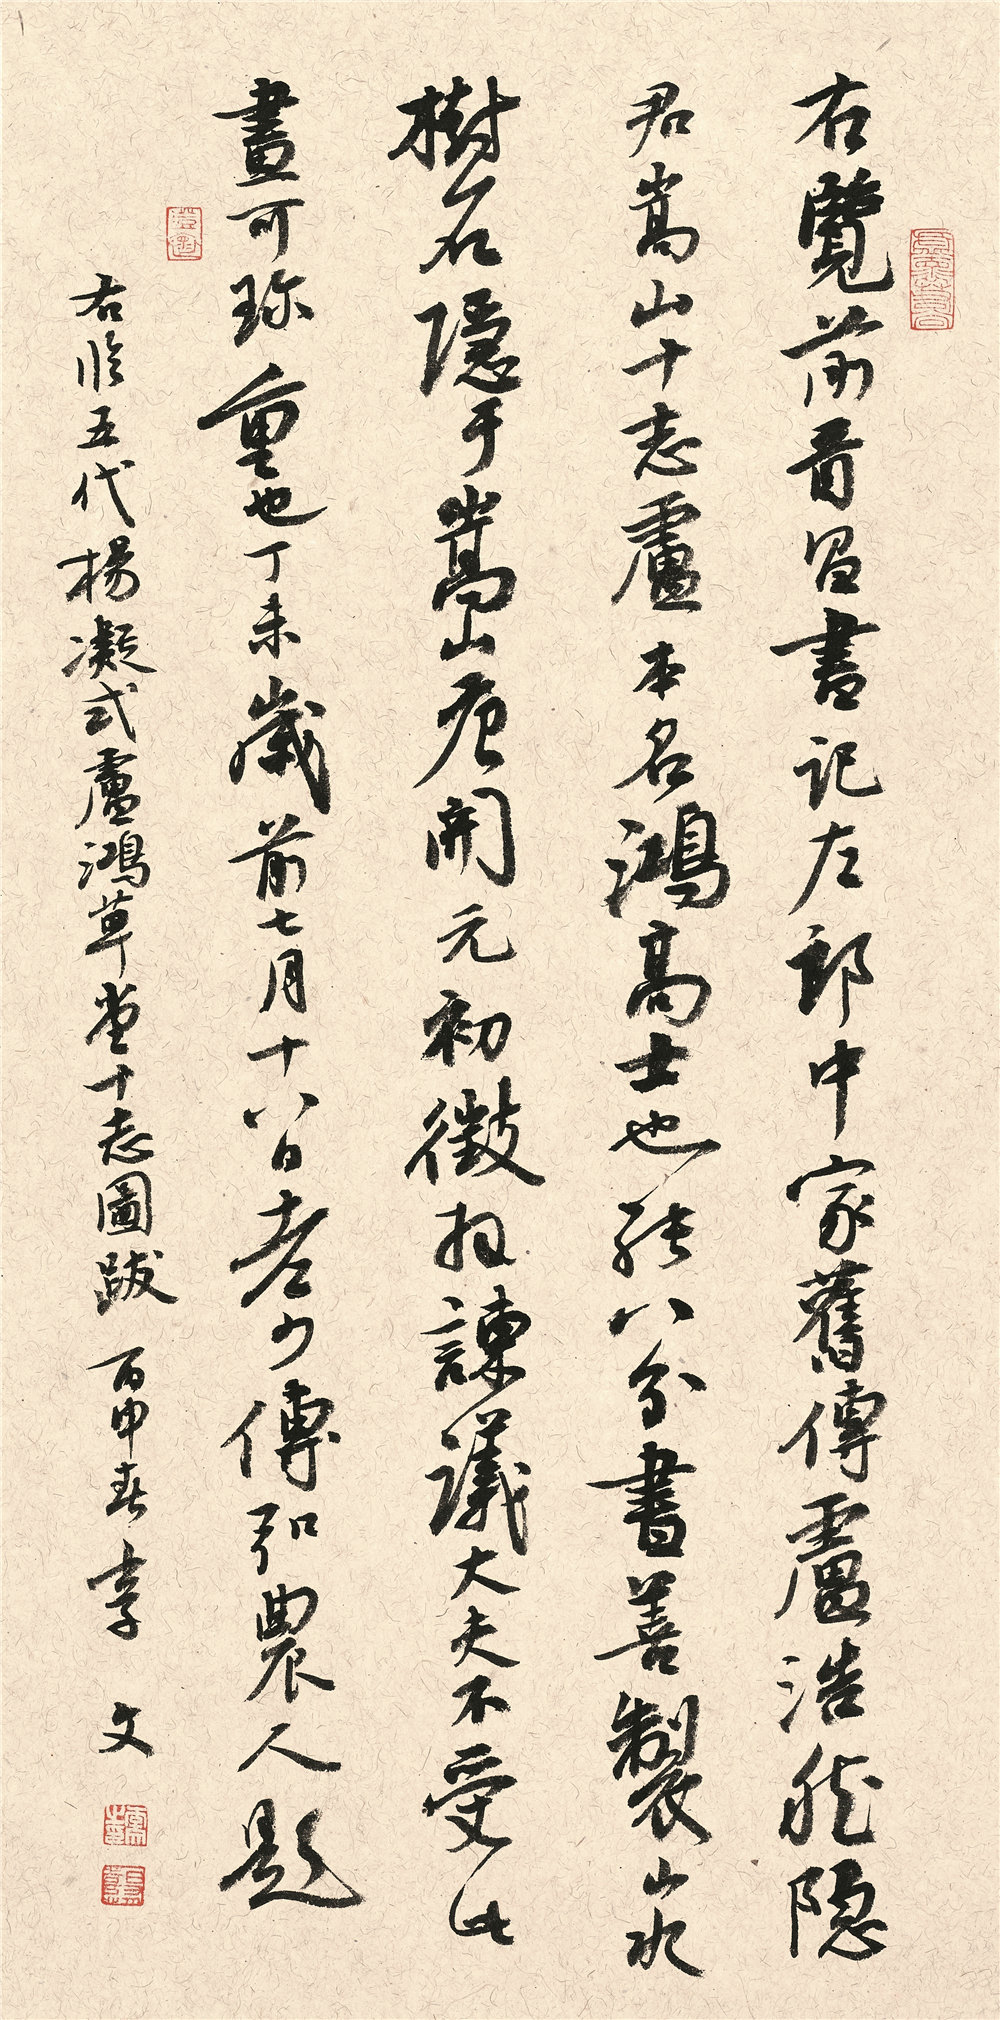 右覽前晉昌書記左郎中家舊傳盧浩然隐
君嵩山十志盧本名鴻高士也能八分書善製山水
樹石隱于嵩山唐開元初徵拜諫議大夫不受此
畫可珎重也丁未歲前七月十八日老少傅弘農人題
右臨五代楊凝式盧鴻草堂十志圖跋 丙申春 李 文